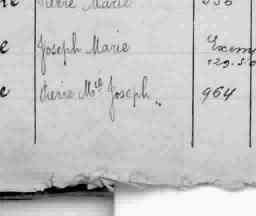 Pierre Marie
e Joseph Marie Exem
129.50
e Pierre Mie Joseph 964